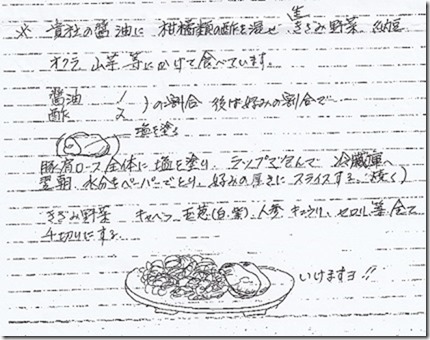 ※ 貴社の醤油に 柑橘類の酢を混ぜ、生きざみ野菜 納豆
オクラ 山芋 等にかけて食べています。
醤油 1
酢 2 )の割合 後は好みの割合で
塩を塗る
豚肩ロース全体に塩を塗り、ラップで包んで 冷蔵庫へ
翌朝 水分をペーパーでとり、好みの厚さに スライスする。焼く)
きざみ野菜 キャベツ、玉葱(白、紫)、人参 キュウリ、セロリ等 全て
千切りにする
いけますヨ!!